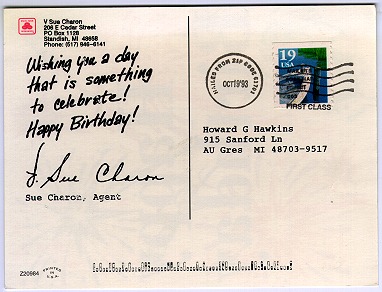 V Sue Charon
206 E Cedar Street
PO Box 1128
Standish, MI 48658
Phone: (517) 846-6141
Wishing you a day
that is something
to celebrate!
Happy Birthday!
J. Sue Charon
Sue Charon, Agent
Z20984
PRINTED IN U.S.A.
MAILED FROM ZIP CODE 61701
OCT 19 '93
19
USA
FIRST CLASS
Howard G Hawkins
915 Sanford Ln
AU Gres MI 48703-9517